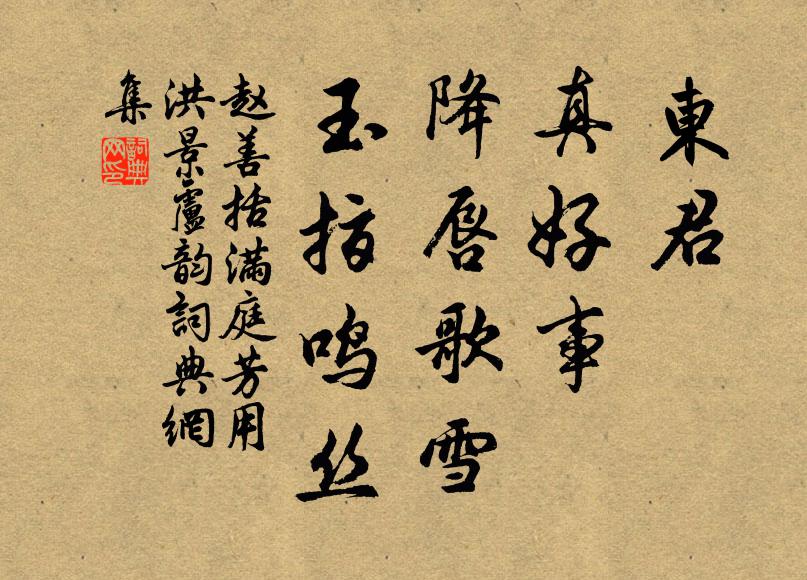 東君
真好事
降唇歌雪
玉指鸣丝
赵善括满庭芳用
洪景盧韵詞典網
集
詞典
网印